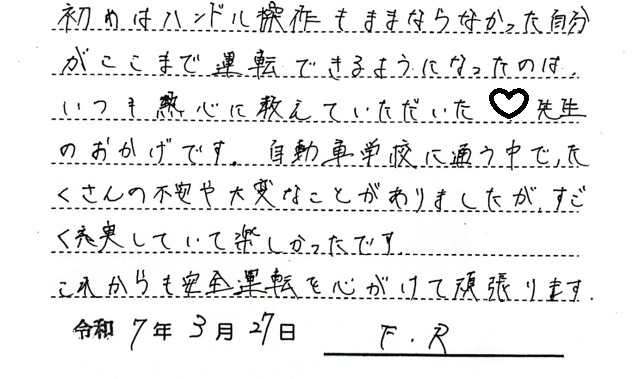 初めはハンドル操作もままならなかった自分
がここまで運転できるようになったのは、
いつも熱心に教えていただいた♡先生
のおかげです。自動車学校に通う中で、た
くさんの不安や大変なことがありましたが、すご
く充実していて楽しかったです。
これからも安全運転を心がけて頑張ります。
令和 7年 3月 27日 F.R